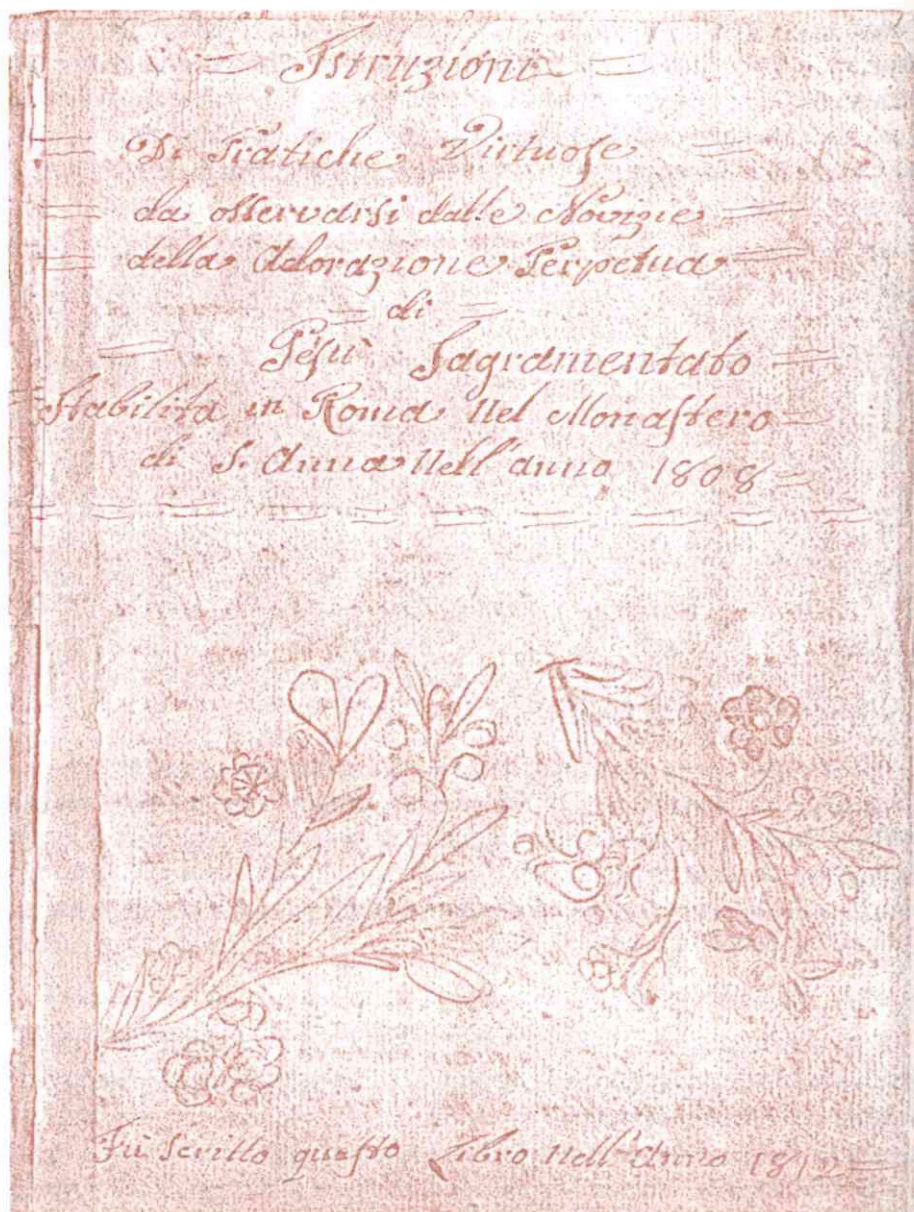 = Istruzioni =
= Di Pratiche Virtuose =
= da osservarsi dalle Novizie =
= della Adorazione Perpetua =
= di =
= Gesù Sagramentato =
Stabilita in Roma Nel Monastero =
di S. Anna Nell'anno 1808 =
Fù Scritto questo Libro Nell'Anno 1812 =